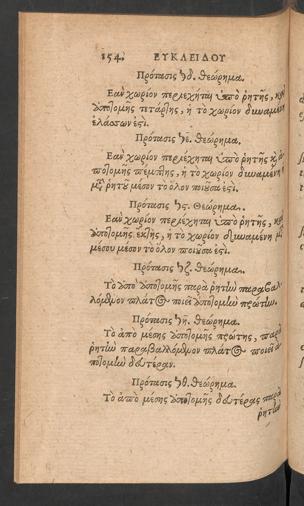 154. ΕΥΚΛΕΙΔΟΥ
Πρότασις ϟδ. θεώρημα.
Ἐὰν χωρίον περιέχηται ὑπὸ ῥητῆς, καὶ
ἀποτομῆς τετάρτης, ἡ τὸ χωρίον δυναμένη
ἐλάσσων ἐστί.
Πρότασις ϟε. θεώρημα.
Ἐὰν χωρίον περιέχηται ὑπὸ ῥητῆς κὶ ἀ-
ποτομῆς πέμπτης, ἡ τὸ χωρίον δυναμένη ἡ
μετὰ ῥητοῦ μέσον τὸ ὅλον ποιοῦσα ἐστί.
Πρότασις ϟς. Θεώρημα.
Ἐὰν χωρίον περιέχηται ὑπὸ ῥητῆς, καὶ
ἀποτομῆς ἕκτης, ἡ τὸ χωρίον δυναμένη μετὰ
μέσου μέσον τὸ ὅλον ποιοῦσα ἐστί.
Πρότασις ϟζ. θεώρημα.
Τὸ ἀπὸ ἀποτομῆς παρὰ ῥητὴν παραβαλ-
λόμενον πλάτος ποιεῖ ἀποτομὴν πρώτην.
Πρότασις ϟη. θεώρημα.
Τὸ ἀπὸ μέσης ἀποτομῆς πρώτης, παρὰ
ῥητὴν παραβαλλόμενον πλάτος ποιεῖ ἀ-
ποτομὴν δευτέραν.
Πρότασις ϟθ. θεώρημα.
Τὸ ἀπὸ μέσης ἀποτομῆς δευτέρας παρὰ
ῥητὴν